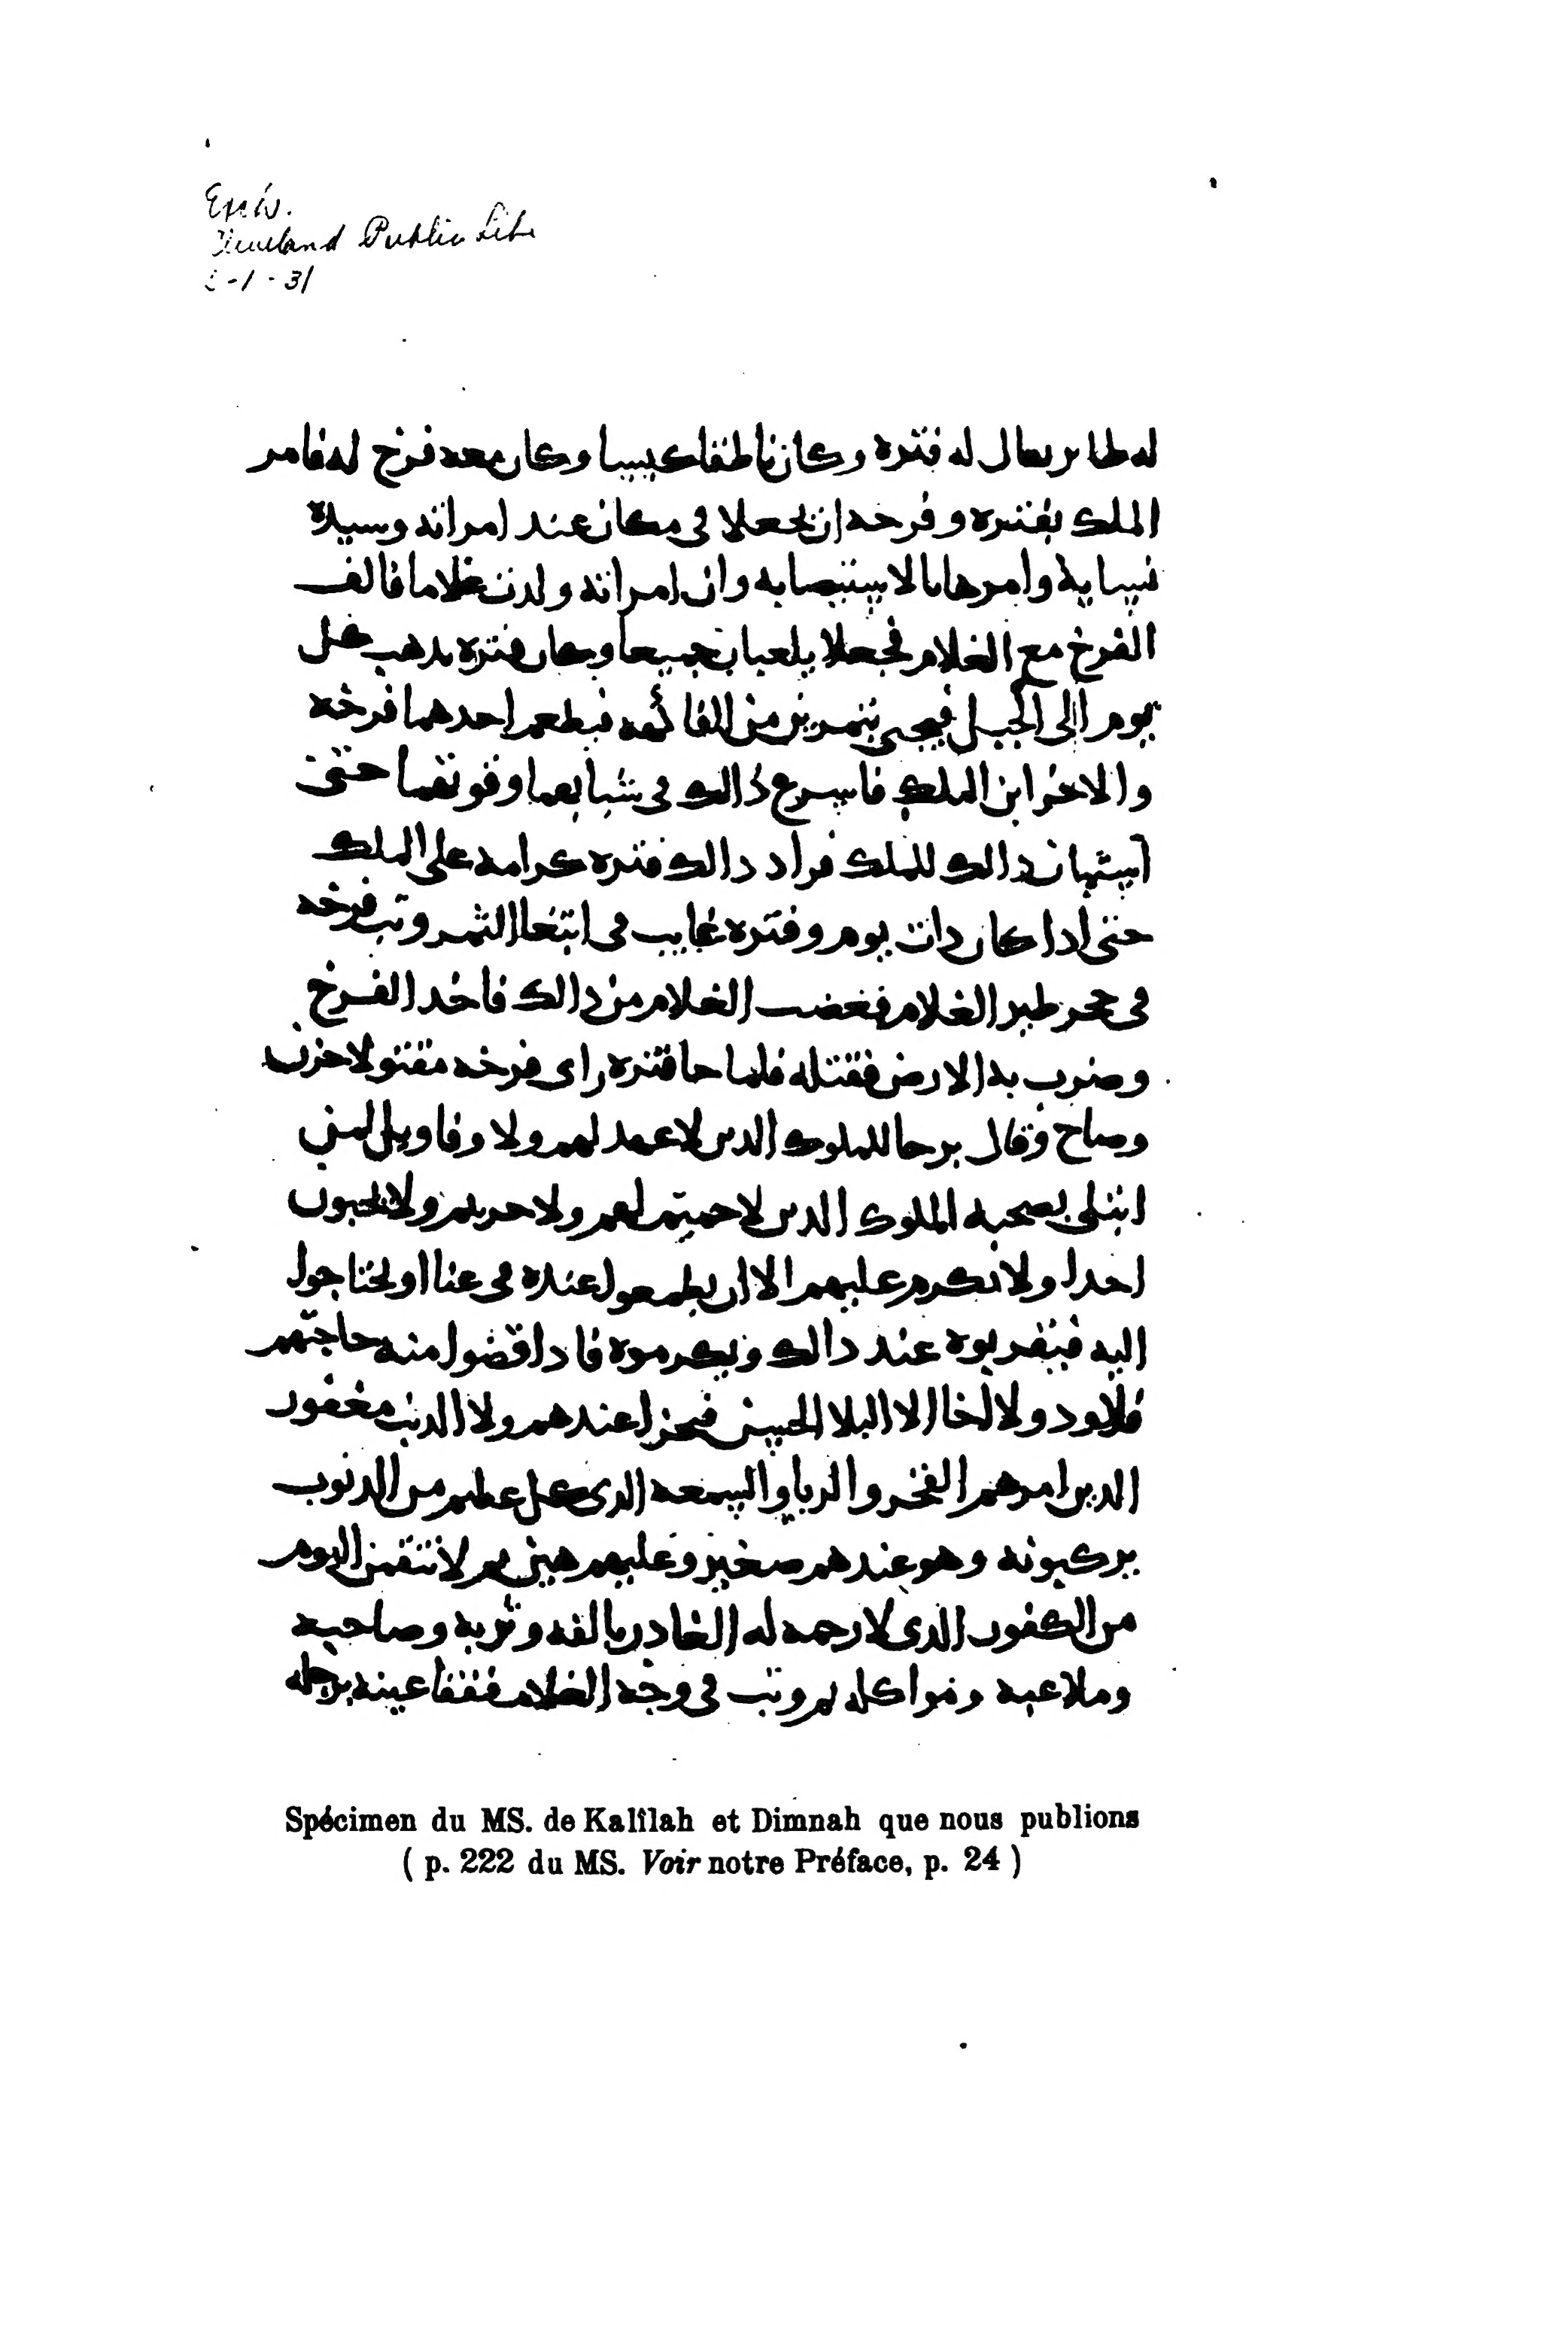 Exch.
Cleveland Public Lib.
-1-31
له طاير يقال له فنزه وكان ناطقا كيسا وكان معه فرخ له فامر
الملك بفنزه وفرخه ان يجعلا في مكان عند امراته وسيدة
نسايه وامرها بالاستيصا به وان امراته ولدت غلاما فالف
الفرخ مع الغلام فجعلا يلعبان جميعا وكان فنزه يدهب كل
يوم الى الجبل فيجى بثمرتين من الفاكهه فيطعم احدهما فرخه
والاخر ابن الملك فاسرع دالك في شبابهما وقوتهما حتى
استبان دالك للملك فزاد دالك فنزه كرامه على الملك
حتى ادا كان دات يوم وفنزه غايب في ابتغا الثمر وثب فرخه
في حجر طير الغلام فغضب الغلام من دالك فاخد الفرخ
وضرب به الارض فقتله فلما جا فنزه راى فرخه مقتولا حزن
وصاح وقال برحا للملوك الدين لا عهد لهم ولا وفا ويل لمن
ابتلي بصحبه الملوك الدين لا حميم لهم ولا حريم ولا يحبون
احدا ولا يكرم عليهم الا ان يطمعوا عنده في عنا او يحتاجوا
اليه فيقربوه عند دالك ويكرموه فادا قضوا منه حاجتهم
فلا ود ولا اخا الا البلا الحسن فجزا عندهم ولا الدنب مغفور
الدين امرهم الفخر والريا والسمعه الدى كل عظيم من الدنوب
يركبونه وهو عندهم صغير وعليهم هين ثم لانتقمن اليوم
من الكفور الدى لا رحمه له الغادر بالفه وتربه وصاحبه
وملاعبه ومواكله ثم وثب في وجه الغلام ففقا عينه برجله
Spécimen du MS. de Kalîlah et Dimnah que nous publions
( p. 222 du MS. Voir notre Préface, p. 24 )